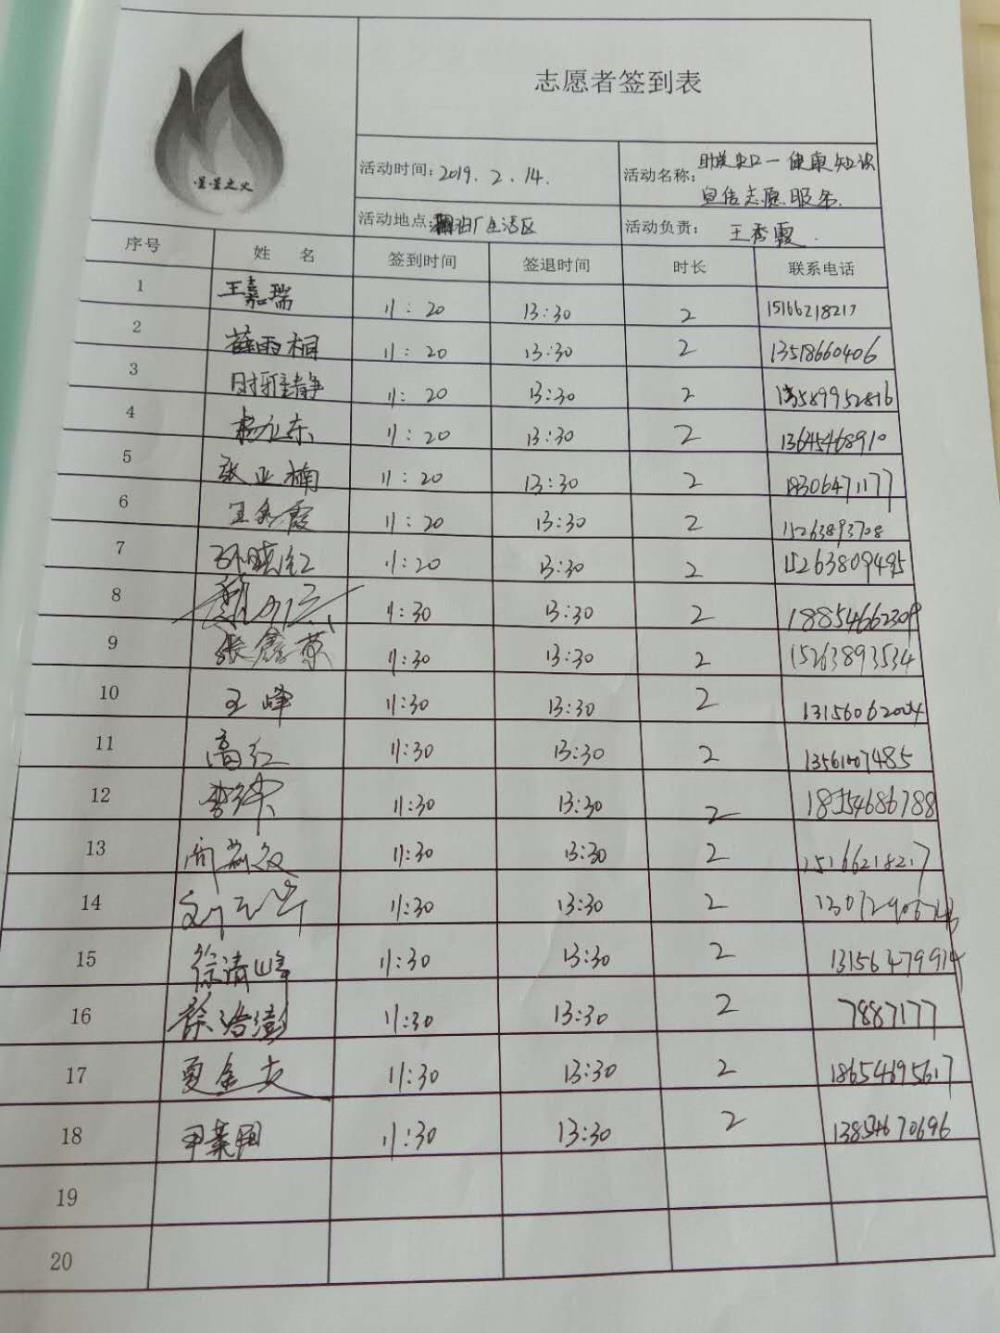 志愿者签到表
星星之火
活动时间: 2019. 2. 14.
活动名称: 健康知识
宣传志愿服务
活动地点: 油厂生活区
活动负责: 王秀霞.
序号 姓 名 签到时间 签退时间 时长 联系电话
1 王嘉瑞 11:20 13:30 2 15166218217
2 薛雨桐 11:20 13:30 2 13518660406
3 时雅静 11:20 13:30 2 13589952816
4 11:20 13:30 2 13645468910
5 张亚楠 11:20 13:30 2 18306471177
6 王秀霞 11:20 13:30 2 15263893708
7 孙晓红 11:20 13:30 2 15263809495
8 11:30 13:30 2 18854662309
9 张鑫燕 11:30 13:30 2 15263893534
10 王峰 11:30 13:30 2 13156062004
11 高红 11:30 13:30 2 13561007485
12 11:30 13:30 2 18354686788
13 11:30 13:30 2 15166218217
14 11:30 13:30 2
15 徐清峰 11:30 13:30 2 13156479914
16 徐浩澎 11:30 13:30 2 7887177
17 夏金 11:30 13:30 2 18654695617
18 11:30 13:30 2 13854670696
19
20